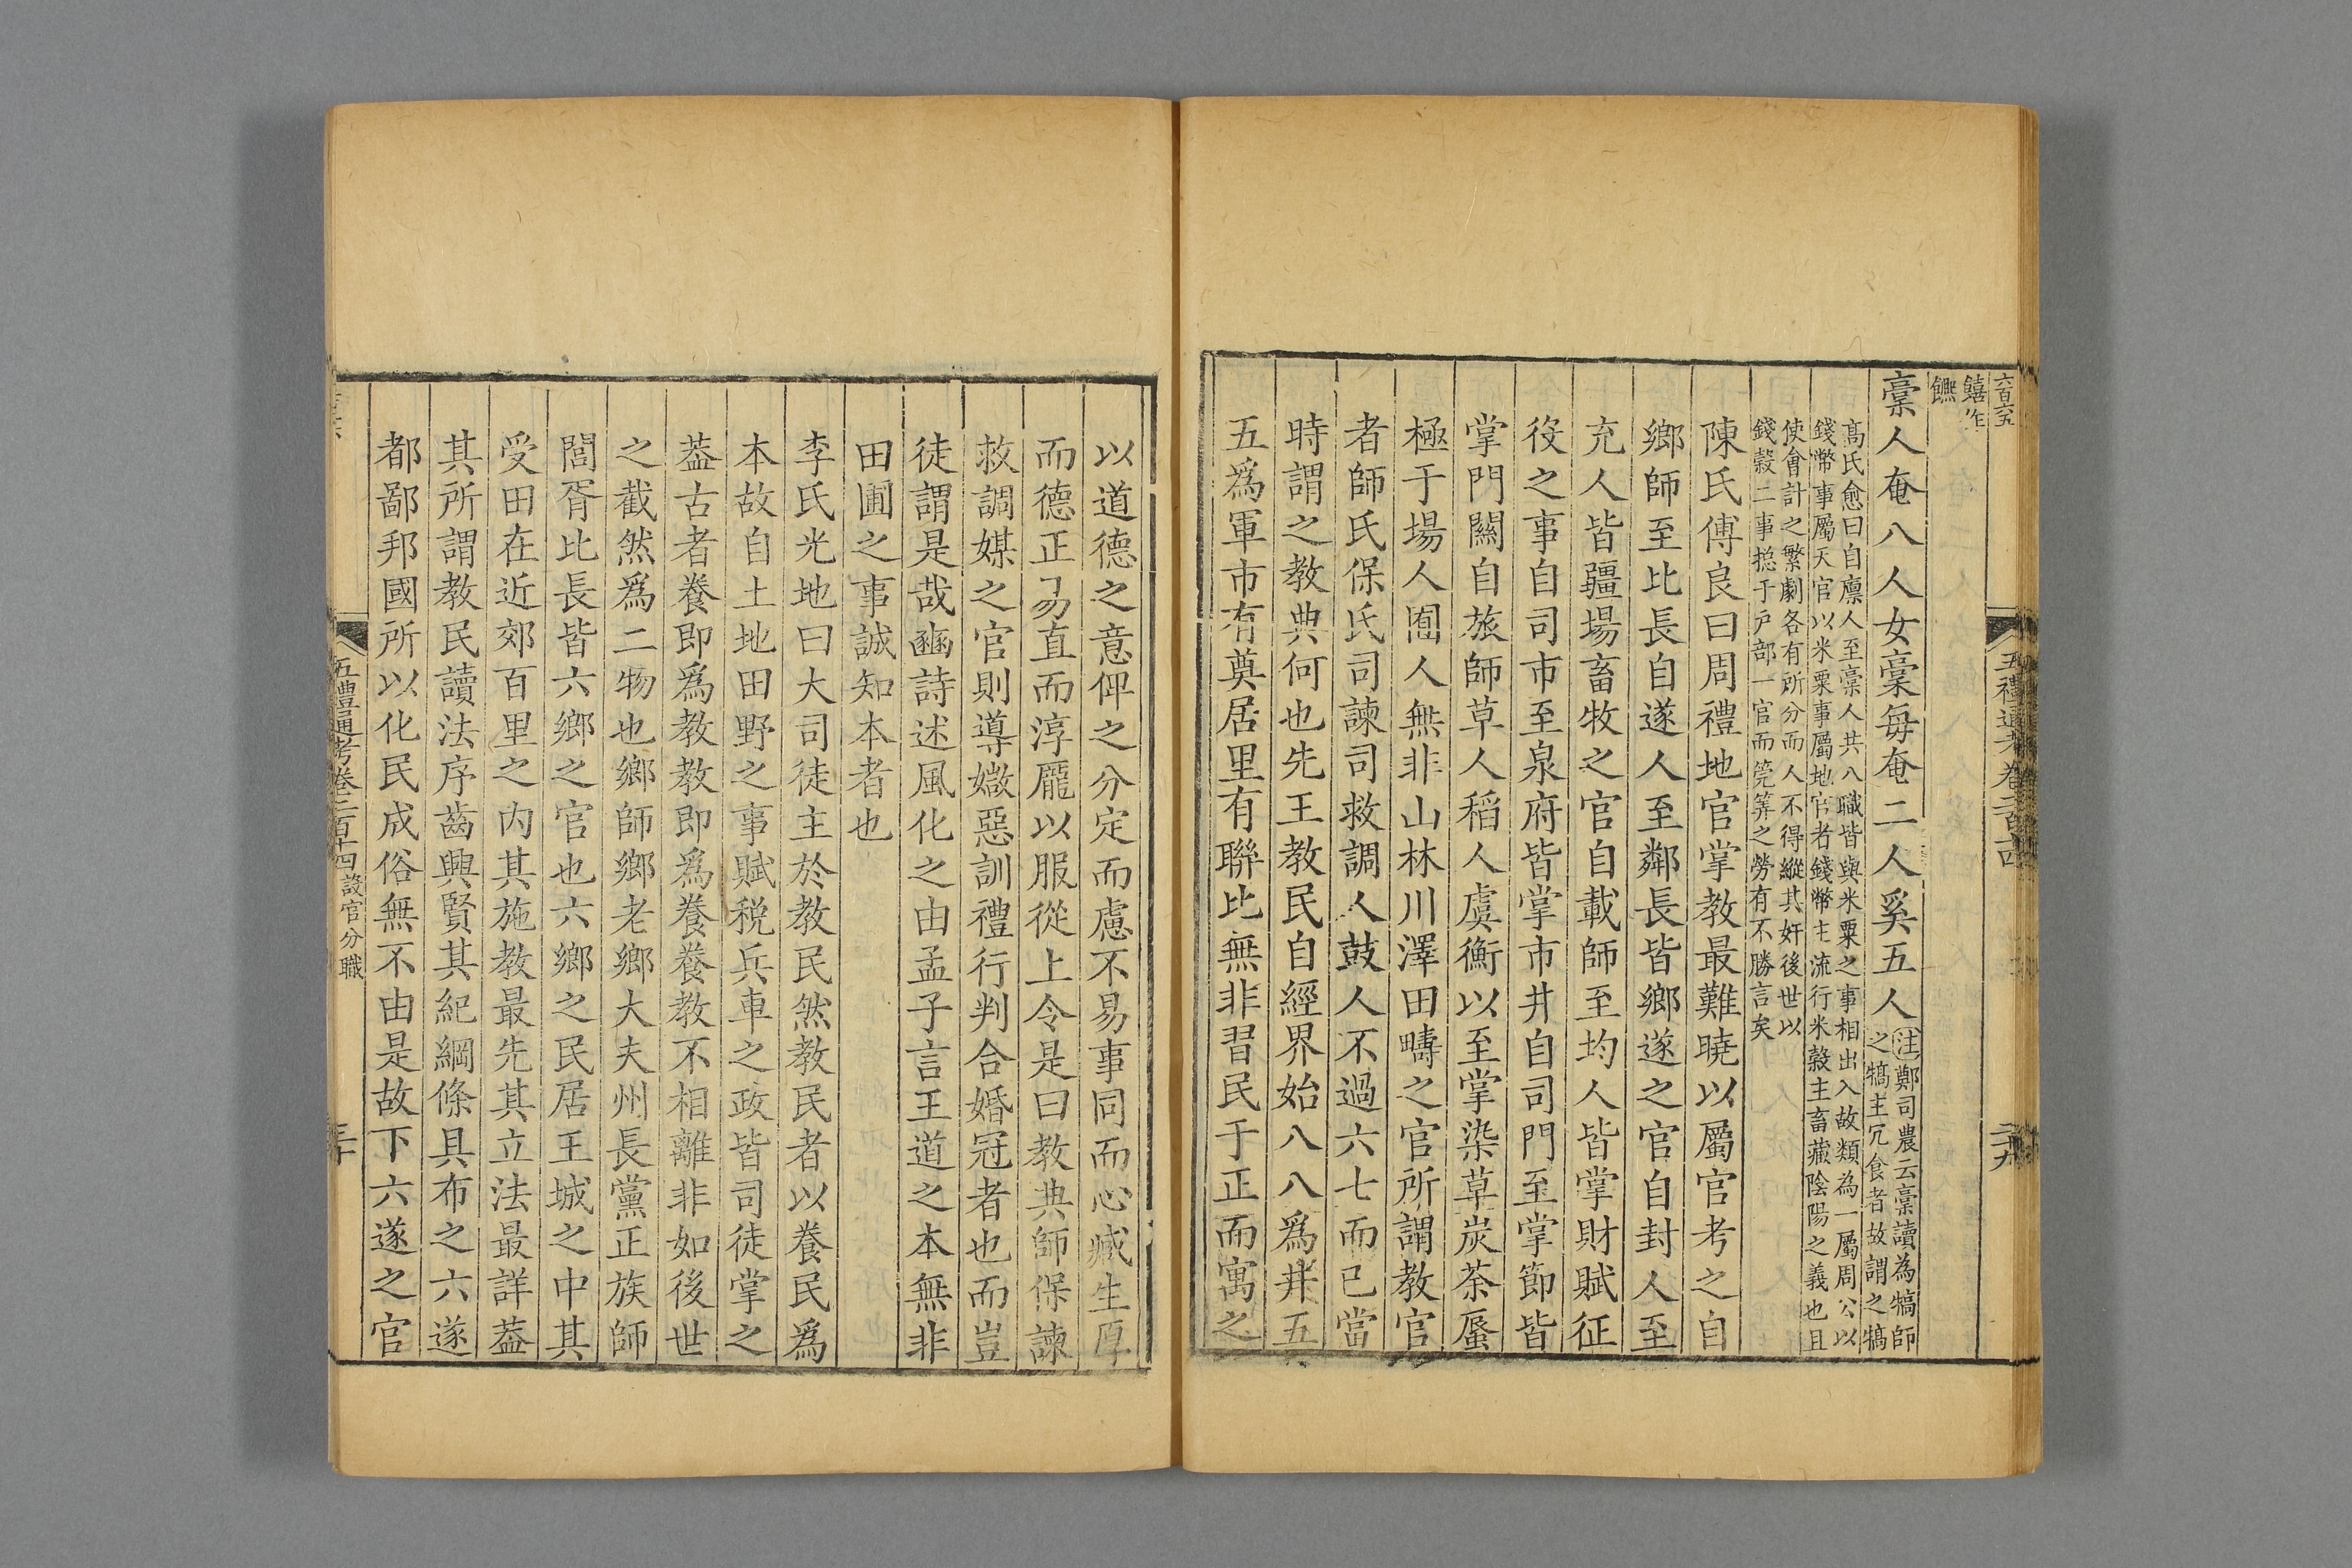 六百六五
五禮通考卷二百十四
二十九
饎作
饌
稾人奄八人女稾每奄二人奚五人
注鄭司農云稾讀為犒師
之犒主冗食者故謂之犒
高氏愈曰自廩人至稾人共八職皆與米粟之事相出入故類為一屬周公以
錢幣事屬天官以米粟事屬地官者錢幣主流行米穀主畜藏陰陽之義也且
使會計之繁劇各有所分而人不得縱其奸後世以
錢穀二事摠于戶部一官而筦筭之勞有不勝言矣
陳氏傅良曰周禮地官掌教最難曉以屬官考之自
鄉師至比長自遂人至鄰長皆鄉遂之官自封人至
充人皆疆場畜牧之官自載師至均人皆掌財賦征
役之事自司市至泉府皆掌市井自司門至掌節皆
掌門關自旅師草人稻人虞衡以至掌染草炭荼蜃
極于場人囿人無非山林川澤田疇之官所謂教官
者師氏保氏司諫司救調人鼓人不過六七而已當
時謂之教典何也先王教民自經界始八八爲井五
五爲軍市有奠居里有聯比無非習民于正而寓之
以道德之意俾之分定而慮不易事同而心臧生厚
而德正易直而淳龐以服從上令是曰教典師保諫
救調媒之官則導媺惡訓禮行判合婚冠者也而豈
徒謂是哉豳詩述風化之由孟子言王道之本無非
田圃之事誠知本者也
李氏光地曰大司徒主於教民然教民者以養民爲
本故自土地田野之事賦稅兵車之政皆司徒掌之
葢古者養即爲教教即爲養養教不相離非如後世
之截然爲二物也鄉師鄉老鄉大夫州長黨正族師
閭胥比長皆六鄉之官也六鄉之民居王城之中其
受田在近郊百里之内其施教最先其立法最詳葢
其所謂教民讀法序齒興賢其紀綱條具布之六遂
都鄙邦國所以化民成俗無不由是故下六遂之官
五禮通考卷二百十四設官分職
三十